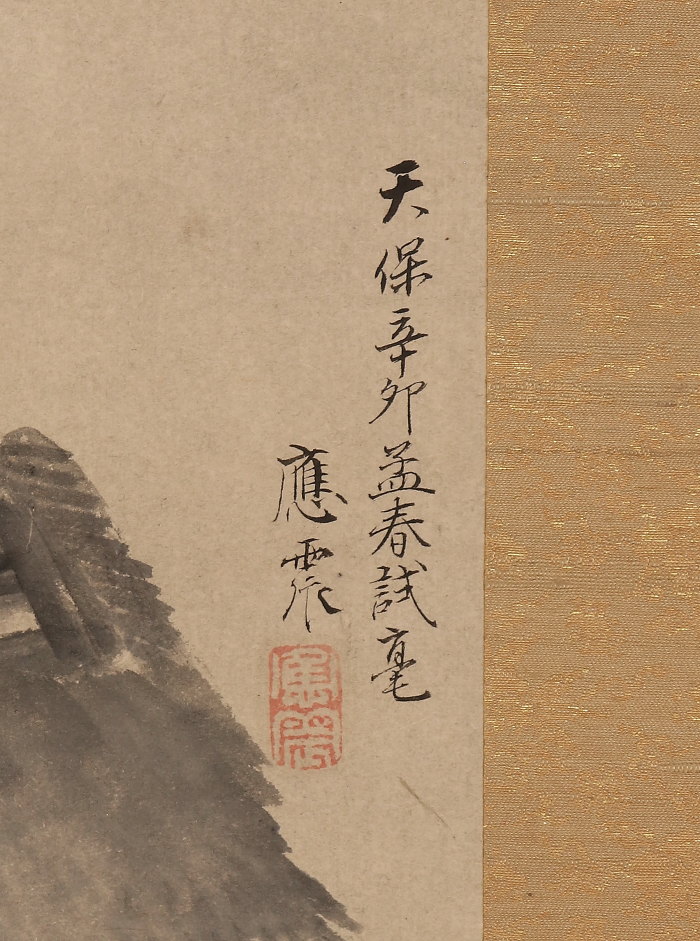 天保辛卯孟春試毫
應震